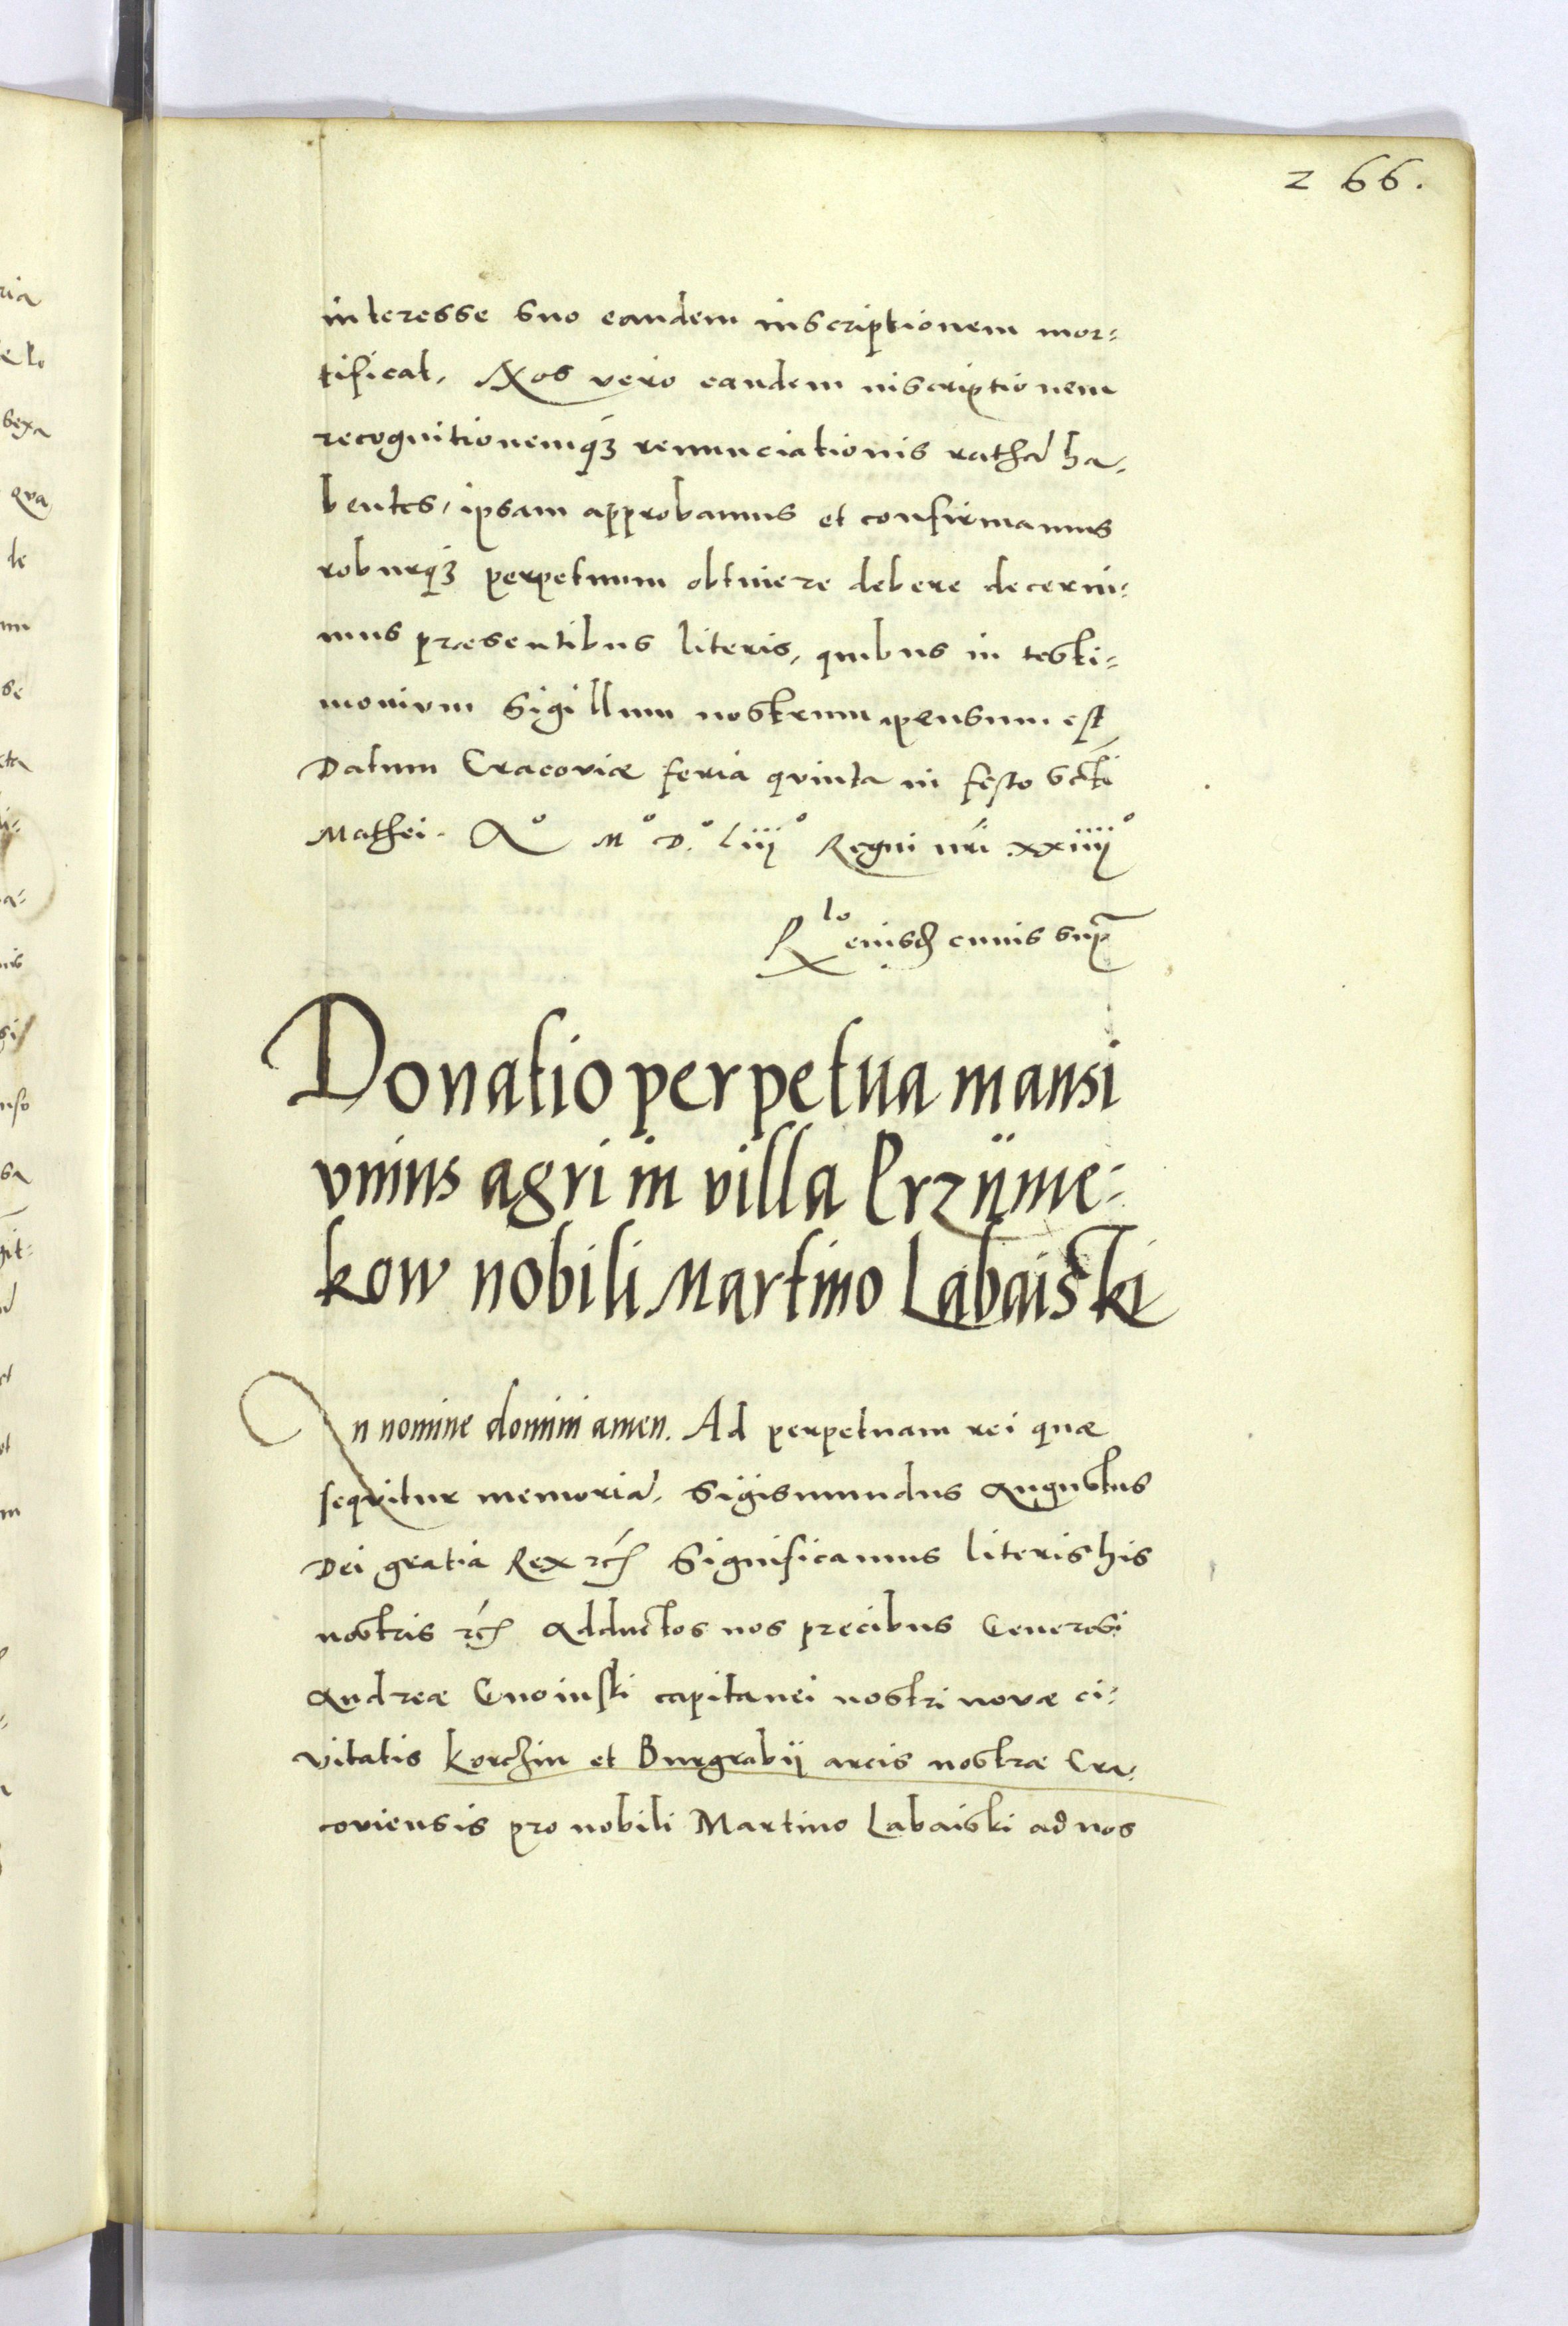 266.
interesse suo eandem inscriptionem mor=
tificat. Nos vero eandem inscriptionem
recognitionemq3 renunciationis rathā ha,
bentes, ipsam approbamus et confirmamus
roburq3 perpetuum obtinere debere decerni=
mus præsentibus literis, quibus in testi=
monium Sigillum nostrum apensum est
Datum Cracoviæ feria quinta in festo Scti
Mathei. Aº Mº D.º Liijº Regni nri xxiiijº
Rlo eiusd cuius supra
Donatio perpetua mansi
vnius agri in villa Przÿme=
kow nobili Martino Labaiski
In nomine domini amen. Ad perpetuam rei quæ
sequitur memoriā. Sigismundus Augustus
Dei gratia Rex etc Significamus literis his
nostris etc Adductos nos precibus Generosi
Andreæ Gnoinski capitanei nostri novæ ci=
vitatis korczin et Burgrabij arcis nostræ Cra=
coviensis pro nobili Martino Labaiski ad nos